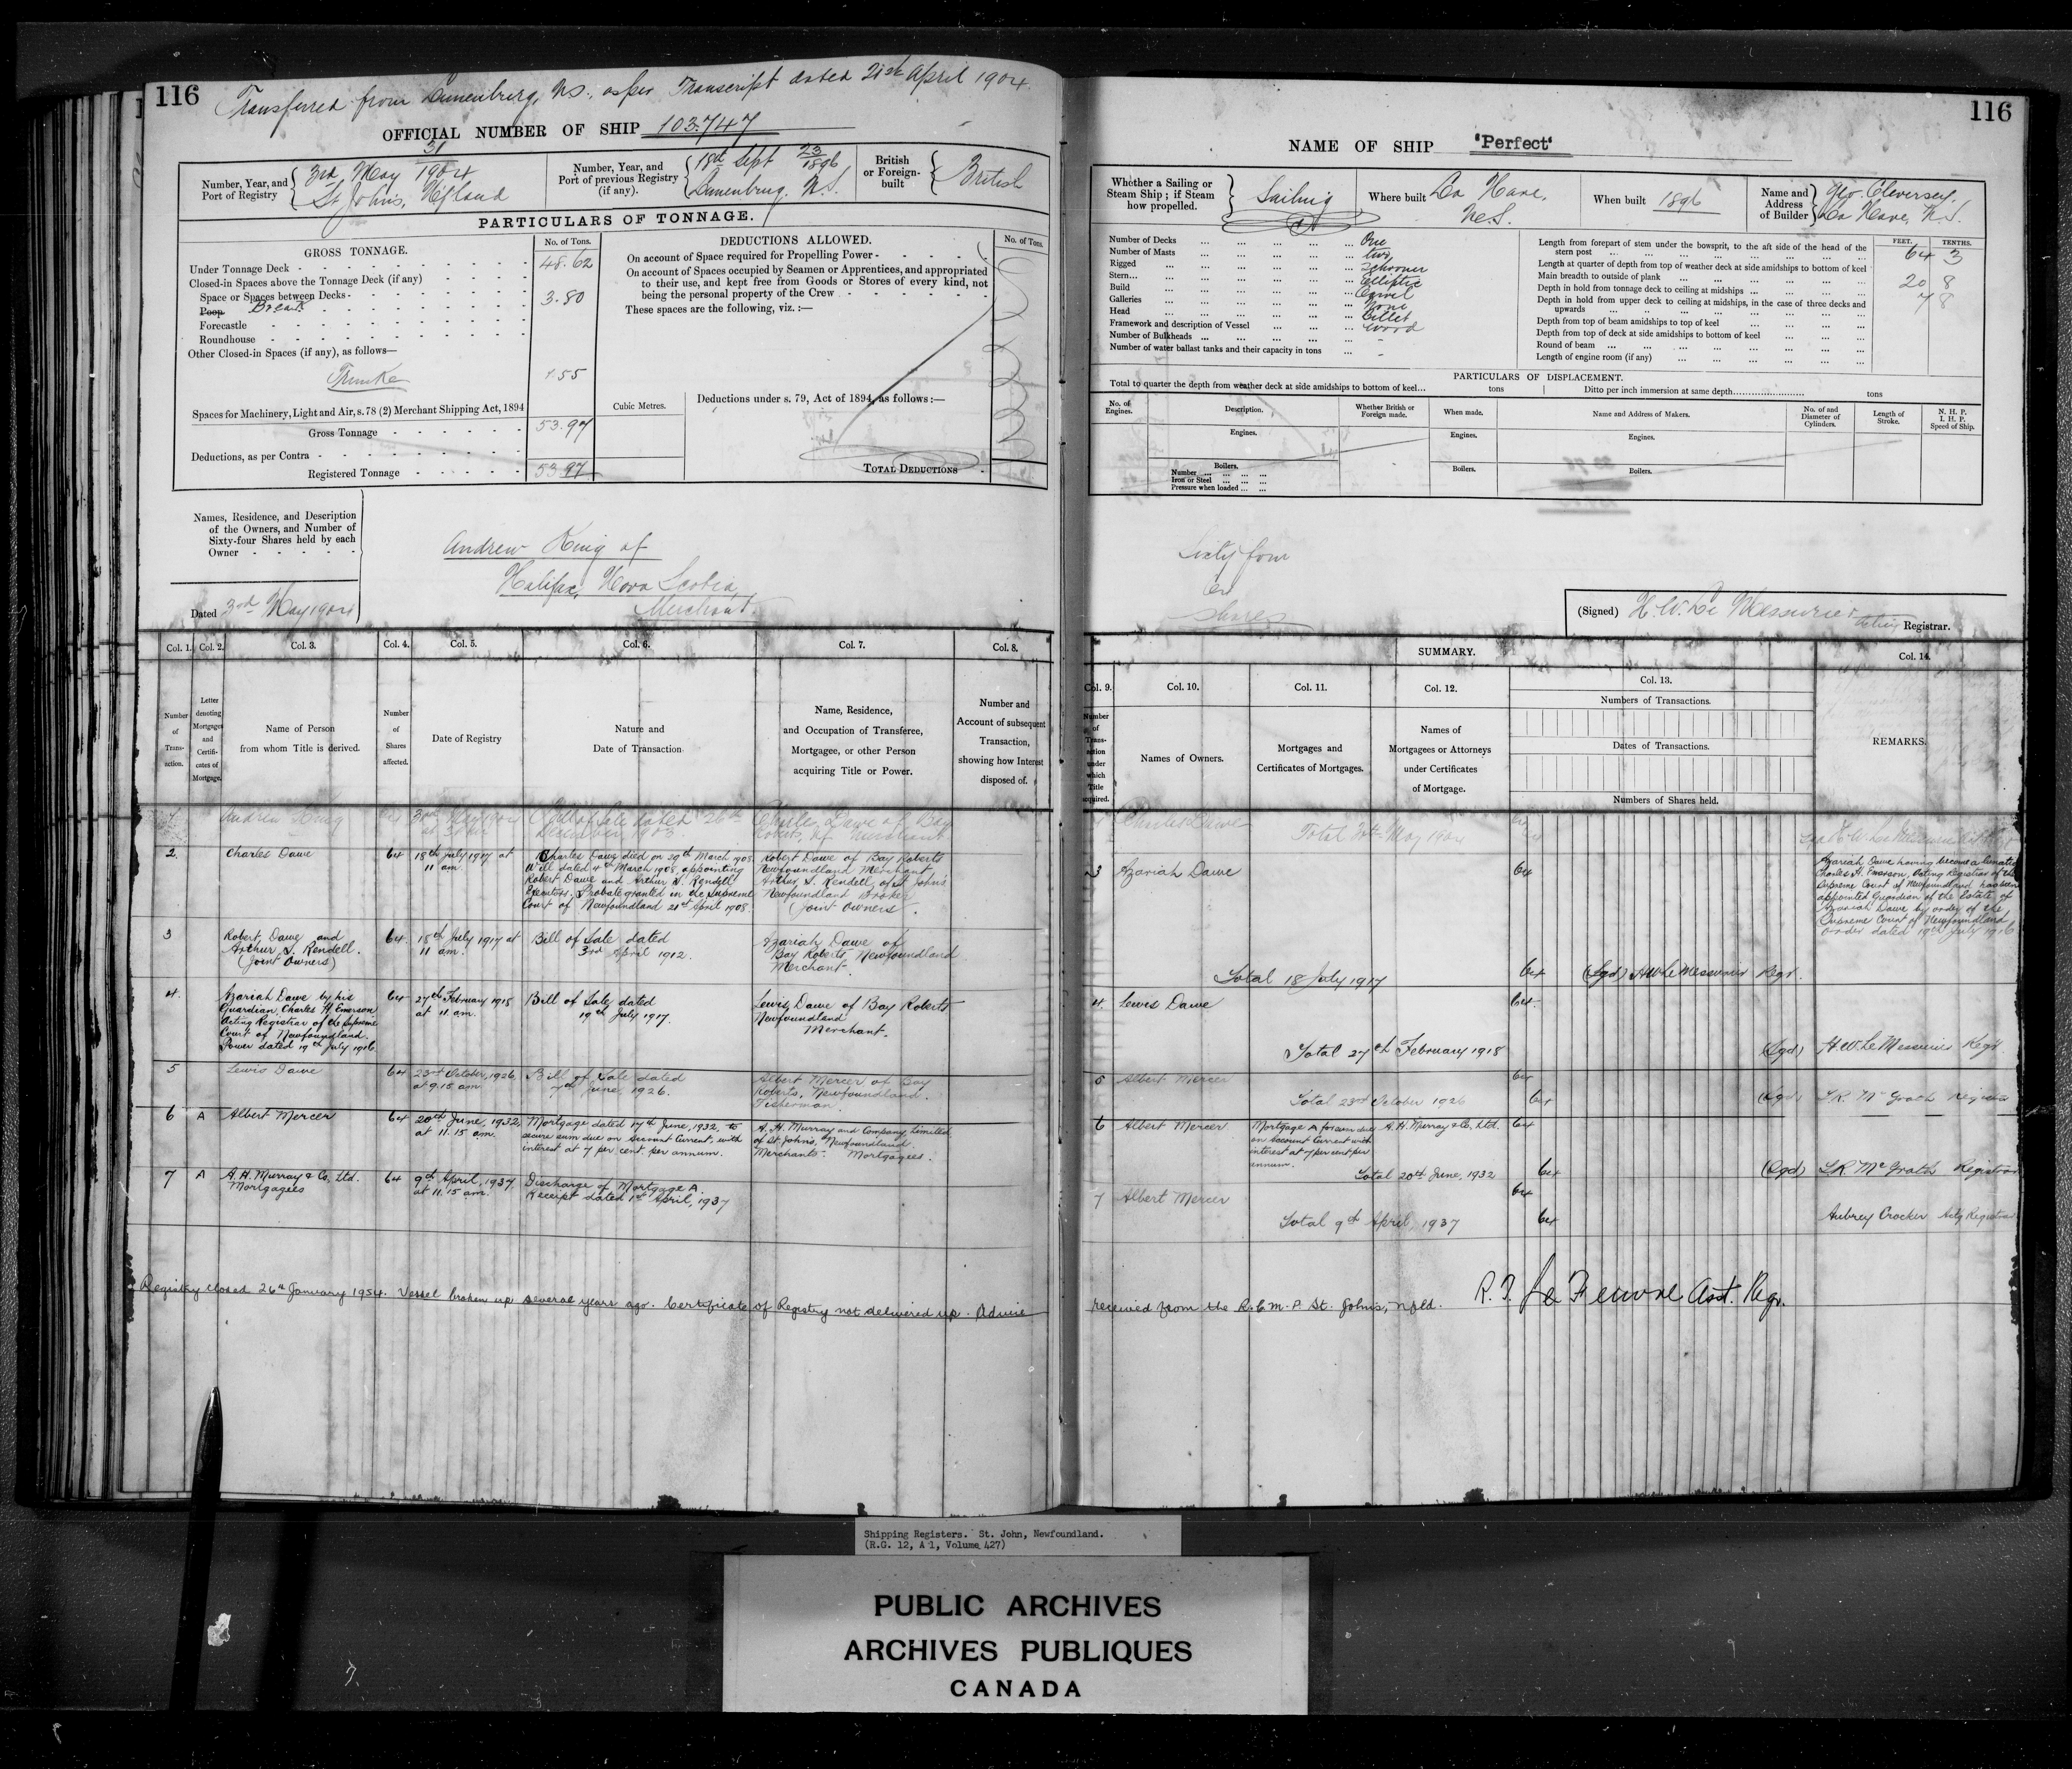 116
Transferred from Lunenburg, N.S., as per Transcript dated 21st April 1904
OFFICIAL NUMBER OF SHIP 103.747
Number, Year, and
Port of Registry
31
3rd May 1904
St John's, N'fland
Number, Year, and
Port of previous Registry
(if any).
23
18th Sept 1896
Lunenburg, N.S.
British
or Foreign-
built
British
PARTICULARS OF TONNAGE.
GROSS TONNAGE.
No. of Tons.
Under Tonnage Deck
48.62
Closed-in Spaces above the Tonnage Deck (if any)
Space or Spaces between Decks
Poop Break
3.80
Forecastle
Roundhouse
Other Closed-in Spaces (if any), as follows—
Trunke
1.55
Spaces for Machinery, Light and Air, s. 78 (2) Merchant Shipping Act, 1894
Gross Tonnage
53.97
Deductions, as per Contra
Registered Tonnage
53.97
DEDUCTIONS ALLOWED.
No. of Tons.
On account of Space required for Propelling Power
On account of Spaces occupied by Seamen or Apprentices, and appropriated
to their use, and kept free from Goods or Stores of every kind, not
being the personal property of the Crew
These spaces are the following, viz.:—
Cubic Metres.
Deductions under s. 79, Act of 1894, as follows:—
TOTAL DEDUCTIONS
Names, Residence, and Description
of the Owners, and Number of
Sixty-four Shares held by each
Owner
Andrew King of
Halifax, Nova Scotia,
Merchant.
Dated 3rd May 1904
Col. 1.
Col. 2.
Col. 3.
Col. 4.
Col. 5.
Col. 6.
Col. 7.
Col. 8.
Number
of
Trans-
action.
Letter
denoting
Mortgages
and
Certifi-
cates of
Mortgage.
Name of Person
from whom Title is derived.
Number
of
Shares
affected.
Date of Registry
Nature and
Date of Transaction
Name, Residence,
and Occupation of Transferee,
Mortgagee, or other Person
acquiring Title or Power.
Number and
Account of subsequent
Transaction,
showing how Interest
disposed of.
1 Andrew King 64 3rd May 1904
Bill of Sale dated 26th
December, 1903.
Charles Dawe of Bay
Roberts, Nfld Merchant
2. Charles Dawe 64 18th July 1917 at
11 am.
Charles Dawe died on 29th March 1908.
Will dated 4th March 1908 appointing
Robert Dawe and Arthur S. Rendell
Executors. Probate granted in the Supreme
Court of Newfoundland 21st April 1908.
Robert Dawe of Bay Roberts
Newfoundland Merchant
Arthur S. Rendell, of St John's
Newfoundland Broker
(Joint Owners.
3 Robert Dawe and
Arthur S. Rendell.
(Joint Owners)
64 18th July 1917 at
11 am.
Bill of Sale dated
3rd April 1912.
Azariah Dawe of
Bay Roberts, Newfoundland
Merchant.
4. Azariah Dawe by his
Guardian, Charles H Emerson
Acting Registrar of the Supreme
Court of Newfoundland.
Power dated 19th July 1916
64 27th February 1918
at 11 am.
Bill of Sale dated
19th July 1917.
Lewis Dawe of Bay Roberts
Newfoundland
Merchant.
5 Lewis Dawe 64 23rd October, 1926,
at 9.15 am
Bill of Sale dated
7th June, 1926.
Albert Mercer of Bay
Roberts, Newfoundland.
Fisherman.
6 A Albert Mercer 64 20th June, 1932,
at 11.15 am.
Mortgage dated 17th June, 1932, to
secure sum due on Account Current, with
interest at 7 per cent. per annum.
A. H. Murray and Company, Limited
of St. John's, Newfoundland.
Merchants. Mortgagees.
7 A A. H. Murray & Co. Ltd.
Mortgagees
64 9th April, 1937
at 11.15 am.
Discharge of Mortgage A.
Receipt dated 1st April, 1937
Registry closed 26th January 1954. Vessel broken up several years ago. Certificate of Registry not delivered up. Advice
116
NAME OF SHIP "Perfect"
Whether a Sailing or
Steam Ship; if Steam
how propelled.
Sailing
Where built
La Have,
N.S.
When built 1896
Name and
Address
of Builder
Geo. Cleversey.
La Have, N.S.
Number of Decks One
Number of Masts two
Rigged Schooner
Stern Elliptic
Build Carvel
Galleries None
Head Billet
Framework and description of Vessel wood
Number of Bulkheads -
Number of water ballast tanks and their capacity in tons -
FEET.
TENTHS.
Length from forepart of stem under the bowsprit, to the aft side of the head of the
stern post
64 3
Length at quarter of depth from top of weather deck at side amidships to bottom of keel
Main breadth to outside of plank
20 8
Depth in hold from tonnage deck to ceiling at midships
7 8
Depth in hold from upper deck to ceiling at midships, in the case of three decks and
upwards
Depth from top of beam amidships to top of keel
Depth from top of deck at side amidships to bottom of keel
Round of beam
Length of engine room (if any)
PARTICULARS OF DISPLACEMENT.
Total to quarter the depth from weather deck at side amidships to bottom of keel... tons
Ditto per inch immersion at same depth tons
No. of
Engines.
Description.
Whether British or
Foreign made.
When made.
Name and Address of Makers.
No. of and
Diameter of
Cylinders.
Length of
Stroke.
N. H. P.
I. H. P.
Speed of Ship.
Engines.
Engines.
Engines.
Boilers.
Number
Iron or Steel
Pressure when loaded
Boilers.
Boilers.
Sixty four
64
shares
(Signed) H. W. Le Messurier Acting Registrar.
SUMMARY.
Col. 9.
Col. 10.
Col. 11.
Col. 12.
Col. 13.
Col. 14.
Number
of
Trans-
action
under
which
Title
acquired.
Names of Owners.
Mortgages and
Certificates of Mortgages.
Names of
Mortgagees or Attorneys
under Certificates
of Mortgage.
Numbers of Transactions.
Dates of Transactions.
Numbers of Shares held.
REMARKS.
Charles Dawe 64
Total May 1904 64
3 Azariah Dawe 64
Azariah Dawe having become a lunatic
Charles H. Emerson, Acting Registrar of the
Supreme Court of Newfoundland has been
appointed Guardian of the Estate of
Azariah Dawe by order of the
Supreme Court of Newfoundland
order dated 19th July 1916
Total 18 July 1917 64 (Sgd) H W Le Messurier Regr.
4 Lewis Dawe 64
Total 27th February 1918 (Sgd) H. W. Le Messurier Regr
5 Albert Mercer 64
Total 23rd October 1926 64 (Sgd) Mc Grath Registrar
6 Albert Mercer
Mortgage A for sum due
on Account Current with
interest at 7 per cent per
annum.
A. H. Murray & Co. Ltd. 64
Total 20th June, 1932 64 (Sgd) Mc Grath Registrar
7 Albert Mercer 64
Total 9th April, 1937 64 Aubrey Crocker Actg Registrar
received from the R.C.M.P. St. John's, Nfld. R. F. Le Feuvre Asst. Regr.
Shipping Registers. St. John, Newfoundland.
(R.G. 12, A 1, Volume 427)
PUBLIC ARCHIVES
ARCHIVES PUBLIQUES
CANADA